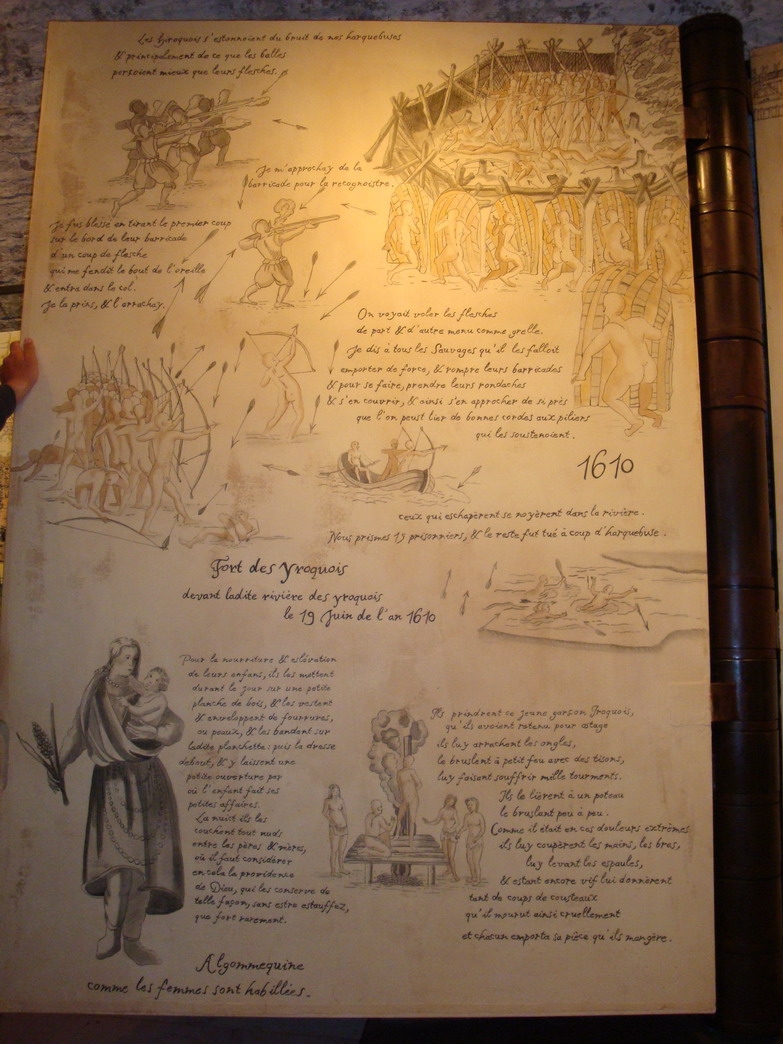 Les Yroquois s'estonnoient du bruit de nos harquebuses
& principalement de ce que les balles
persoient mieux que leurs flesches.
Je m'approchay de la
barricade pour la recognoistre.
Je fus blessé en tirant le premier coup
sur le bord de leur barricade
d'un coup de flesche
qui me fendit le bout de l'oreille
& entra dans le col.
Je la prins, & l'arrachay.
On voyait voler les flesches
de part & d'autre menu comme gresle.
Je dis à tous les Sauvages qu'il les falloit
emporter de force, & rompre leurs barricades
& pour se faire, prendre leurs rondaches
& s'en couvrir, & ainsi s'en approcher de si près
que l'on peust lier de bonnes cordes aux piliers
qui les soustenoient.
1610
ceux qui eschapèrent se noyèrent dans la rivière.
Nous prismes 15 prisonniers, & le reste fut tué à coup d'harquebuse.
Fort des Yroquois
devant ladite rivière des yroquois
le 19 Juin de l'an 1610
Pour la nourriture & eslévation
de leurs enfans, ils les mettent
durant le jour sur une petite
planche de bois, & les vestent
& enveloppent de fourrures,
ou peaux, & les bandent sur
ladite planchette: puis la dresse
debout, & y laissent une
petite ouverture par
où l'enfant fait ses
petites affaires.
La nuict ils les
couchent tout nuds
entre les pères & mères,
où il faut considérer
en cela la providence
de Dieu, qui les conserve de
telle façon, sans estre estouffez,
que fort rarement.
Algommequine
comme les femmes sont habillées.
Ils prindrent ce jeune garson Iroquois,
qu'ils avoient retenu pour ostage
ils luy arrachent les ongles,
le bruslent à petit feu avec des tisons,
luy faisant souffrir mille tourments.
Ils le lièrent à un poteau
le bruslant peu à peu.
Comme il était en ces douleurs extrêmes
ils luy coupèrent les mains, les bras,
luy levant les espaules,
& estant encore vif lui donnèrent
tant de coups de cousteaux
qu'il mourut ainsi cruellement
et chacun emporta sa pièce qu'ils mangère.